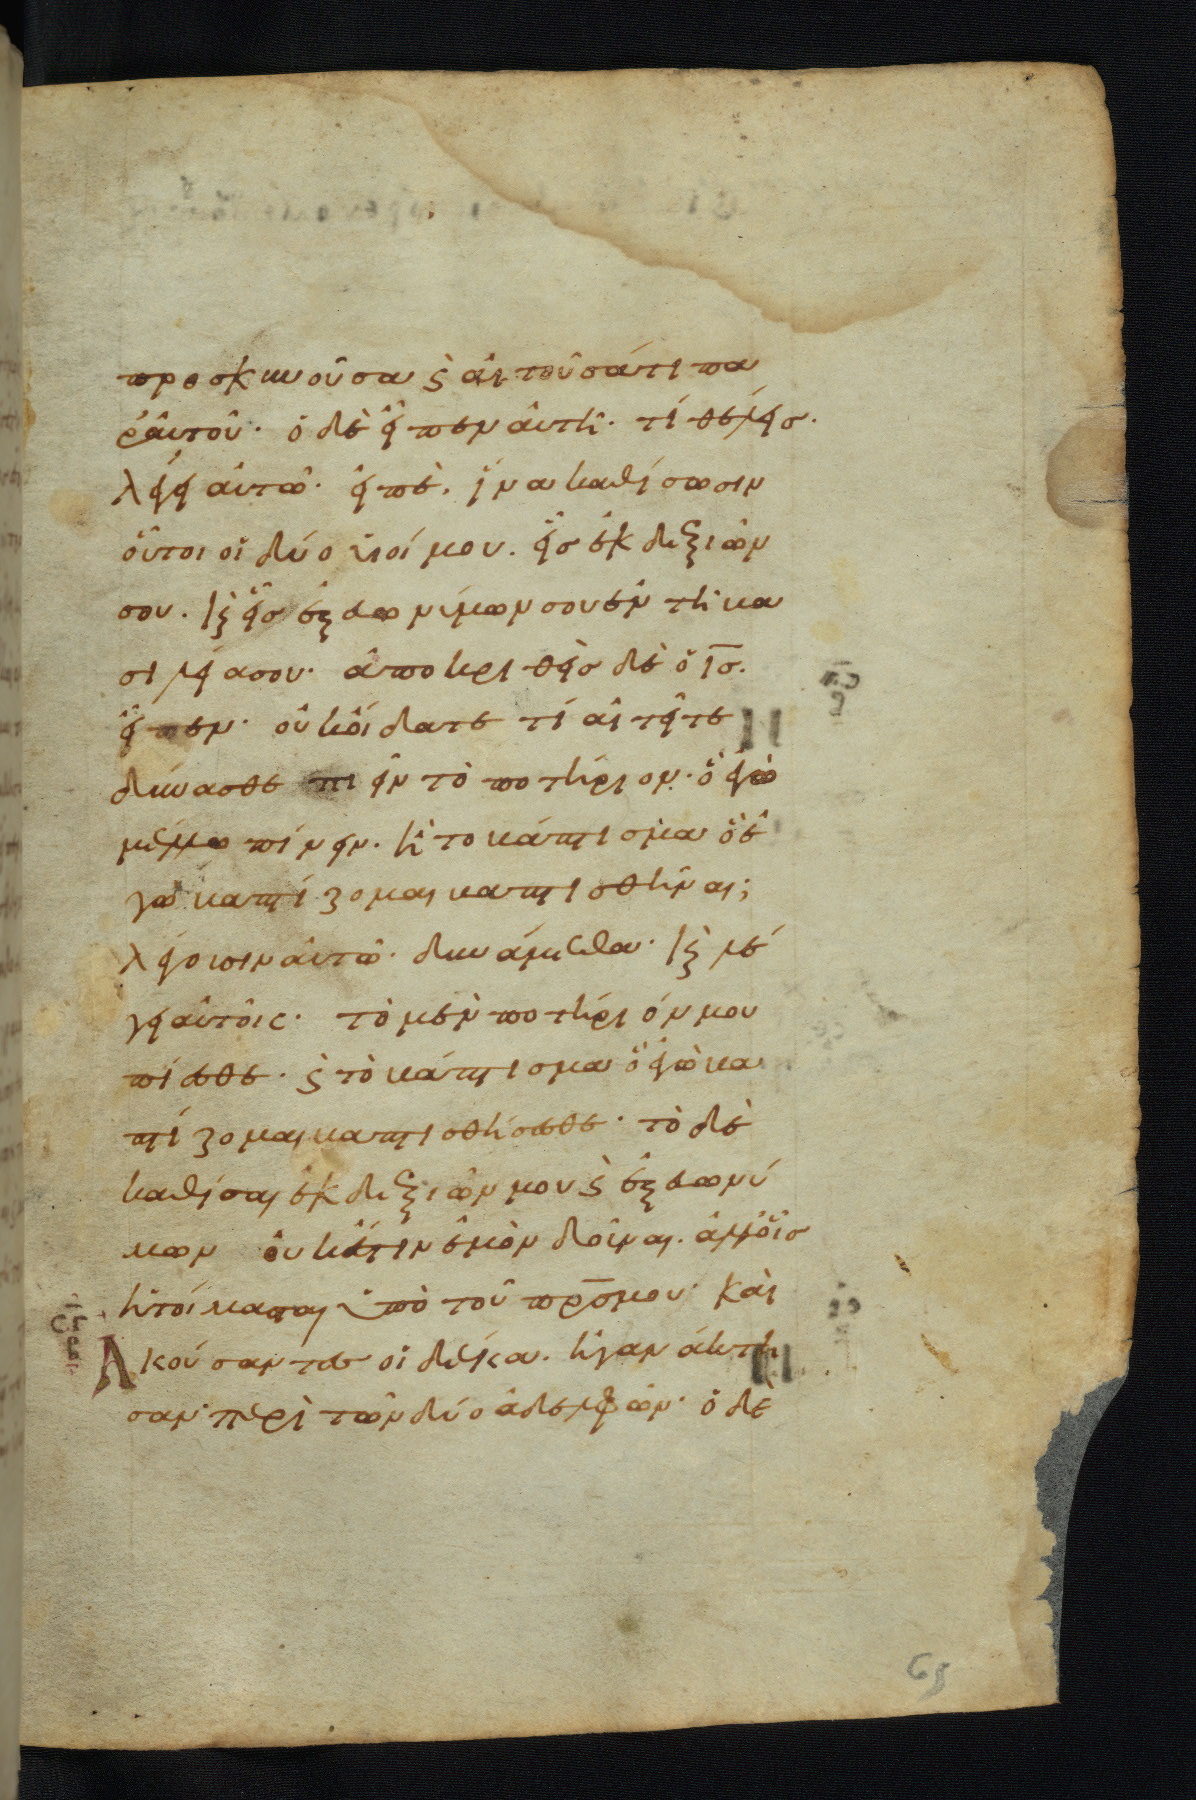 προσκυνοῦσα ϗ αἰτοῦσά τι πα
ρ' αὐτοῦ· ὁ δὲ εἶπεν αὐτῆ· τί θέλεις·
λέγει αὐτῶ· εἰπὲ, ἵνα καθίσωσιν
οὗτοι οἱ δύο υἱοί μου. εἷς ἐκ δεξιῶν
σου. ϗ εἷς ἐξ εὐωνύμων σου ἐν τῆ βα
σιλεία σου· ἀποκριθεὶς δὲ ὁ ις.
εἶπεν· οὐκ οἴδατε τί αἰτεῖτε
δύνασθε πιεῖν τὸ ποτήριον· ὃ ἐγὼ
μέλλω πίνειν. ἢ τὸ βάπτισμα ὃ ἐ
γὼ βαπτίζομαι βαπτισθῆναι;
λέγουσιν αὐτῶ· δυνάμεθα· ϗ λέ
γει αὐτοῖς· τὸ μὲν ποτήριόν μου
πίεσθε· ϗ τὸ βάπτισμα ὃ ἐγὼ βα
πτίζομαι βαπτισθήσεσθε· τὸ δὲ
καθίσαι ἐκ δεξιῶν μου ϗ ἐξ εὐωνύ
μων οὐκ ἔστιν ἐμὸν δοῦναι. ἀλλ' οἷς
ἡτοίμασται ὑπὸ τοῦ πρς μου· καὶ
Ἀκούσαντες οἱ δέκα. ἠγανάκτη
σαν· περὶ τῶν δύο ἀδελφῶν· ὁ δὲ